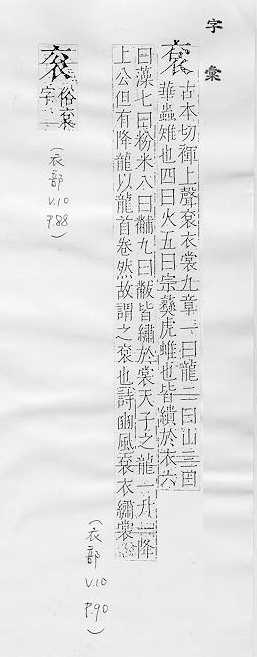 字彙
袞 古本切褌上聲袞衣裳九章一曰龍二曰山三曰
華蟲雉也四曰火五曰宗彝虎蜼也皆繢於衣六
曰藻七曰粉米八曰黼九曰黻皆繡於裳天子之龍一升一降
上公但有降龍以龍首卷然故謂之袞也詩豳風袞衣繡裳
(衣部 V.10 P.90)
俗袞
字
(衣部 V.10 P.88)